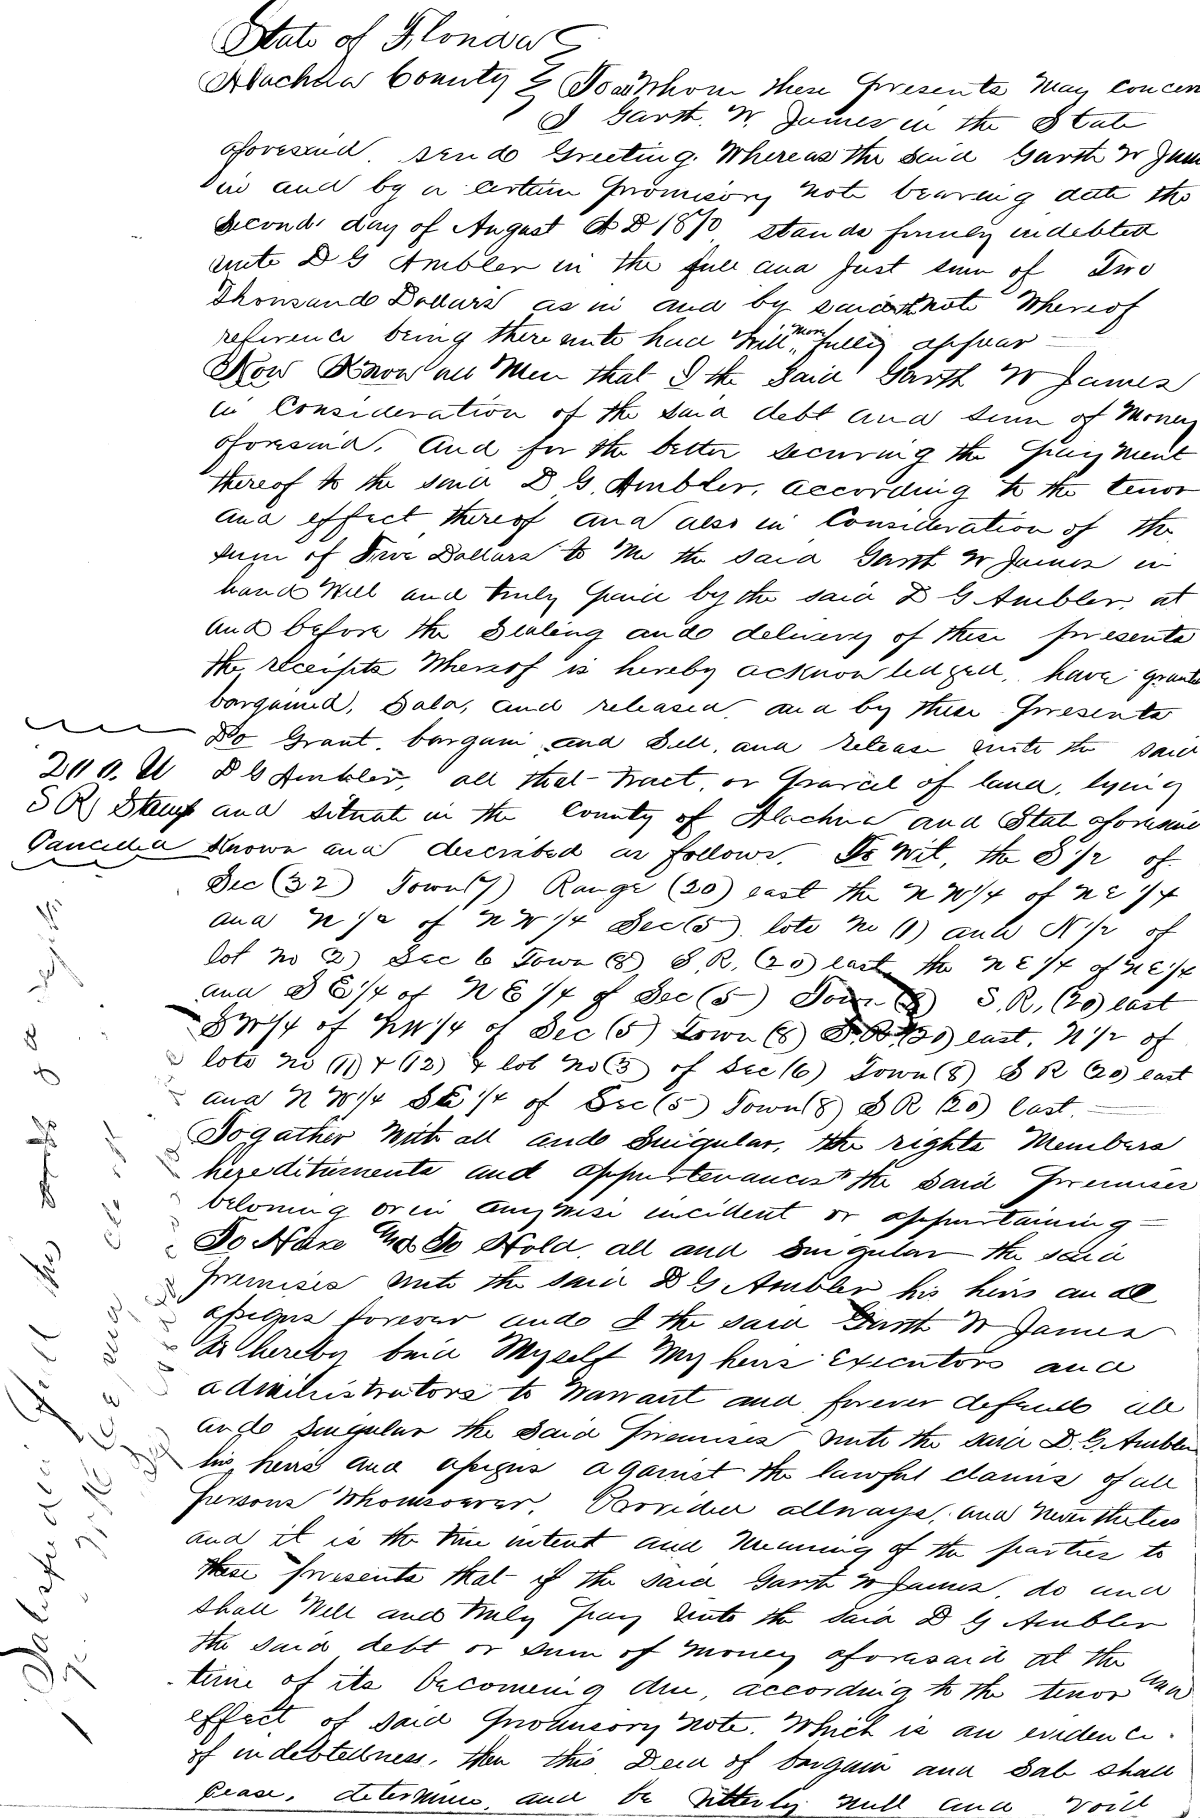 State of Florida
Alachua County To Whom these presents may concern
I Garth. W. James in the State
aforesaid. send Greeting. Whereas the said Garth W Jam
in and by a certain promisory note bearing date the
second day of August A D 1870 stands firmly indebted
unto D G Ambler in the full and just sum of Two
Thousand Dollars as in and by said note Whereof
reference being there unto had Will more fully appear
Now Know all Men that I the said Garth W James
in Consideration of the said debt and sum of Money
aforesaid. And for the better securing the payment
thereof to the said D G. Ambler, according to the tenor
and effect thereof and also in Consideration of the
sum of Five Dollars to Me the said Garth W James in
hand Well and truly paid by the said D G Ambler, at
and before the Sealing and delivery of these presents
the receipts Whereof is hereby acknowledged, have grante
bargained, Sold, and released, and by these presents
Do Grant. bargain and Sell, and release unto the said
D G Ambler, all that tract, or parcel of land, lying
and situat in the County of Alachua and State aforesaid
Known and described as follows. To Wit, the S 1/2 of
Sec (32) Town (7) Range (20) east the N W 1/4 of N E 1/4
and N 1/2 of N W 1/4 Sec (5) lots No (1) and N 1/2 of
lot no (2) Sec 6 Town (8) S. R. (20) east the N E 1/4 of N E 1/4
and S E 1/4 of N E 1/4 of Sec (5) Town (8) S. R. (20) east
S W 1/4 of N W 1/4 of Sec (5) Town (8) S. R. (20) east. N 1/2 of
lots no (11) & (12) & lot No (3) of Sec (6) Town (8) S R (20) east
and N W 1/4 S E 1/4 of Sec (5) Town (8) S R (20) East.
Togather With all and Singular, the rights Members
hereditaments and appurtenances to the said premises
beloning or in anywise incident or appurtaining
To Have And To Hold, all and Singular the said
premises unto the said D G Ambler his heirs and
assigns forever and I the said Garth W James
do hereby bind Myself My heirs Executors and
administrators to warrant and forever defend all
and singular the said premises unto the said D. G. Ambler
his heirs and assigns against the lawful claims of all
persons Whomsoever. Provided allways, and nevertheless
and it is the true intent and Meaning of the parties to
these presents that if the said Garth W James, do and
shall Well and truly pay unto the said D G Ambler
the said debt or sum of money aforesaid at the
time of its becoming due, according to the tenor and
effect of said promissory note. Which is an evidence
of indebtedness. then this Deed of bargain and Sale shall
Cease. determine. and be utterly null and void
S R Stamp
Cancelled
Satisfied in full